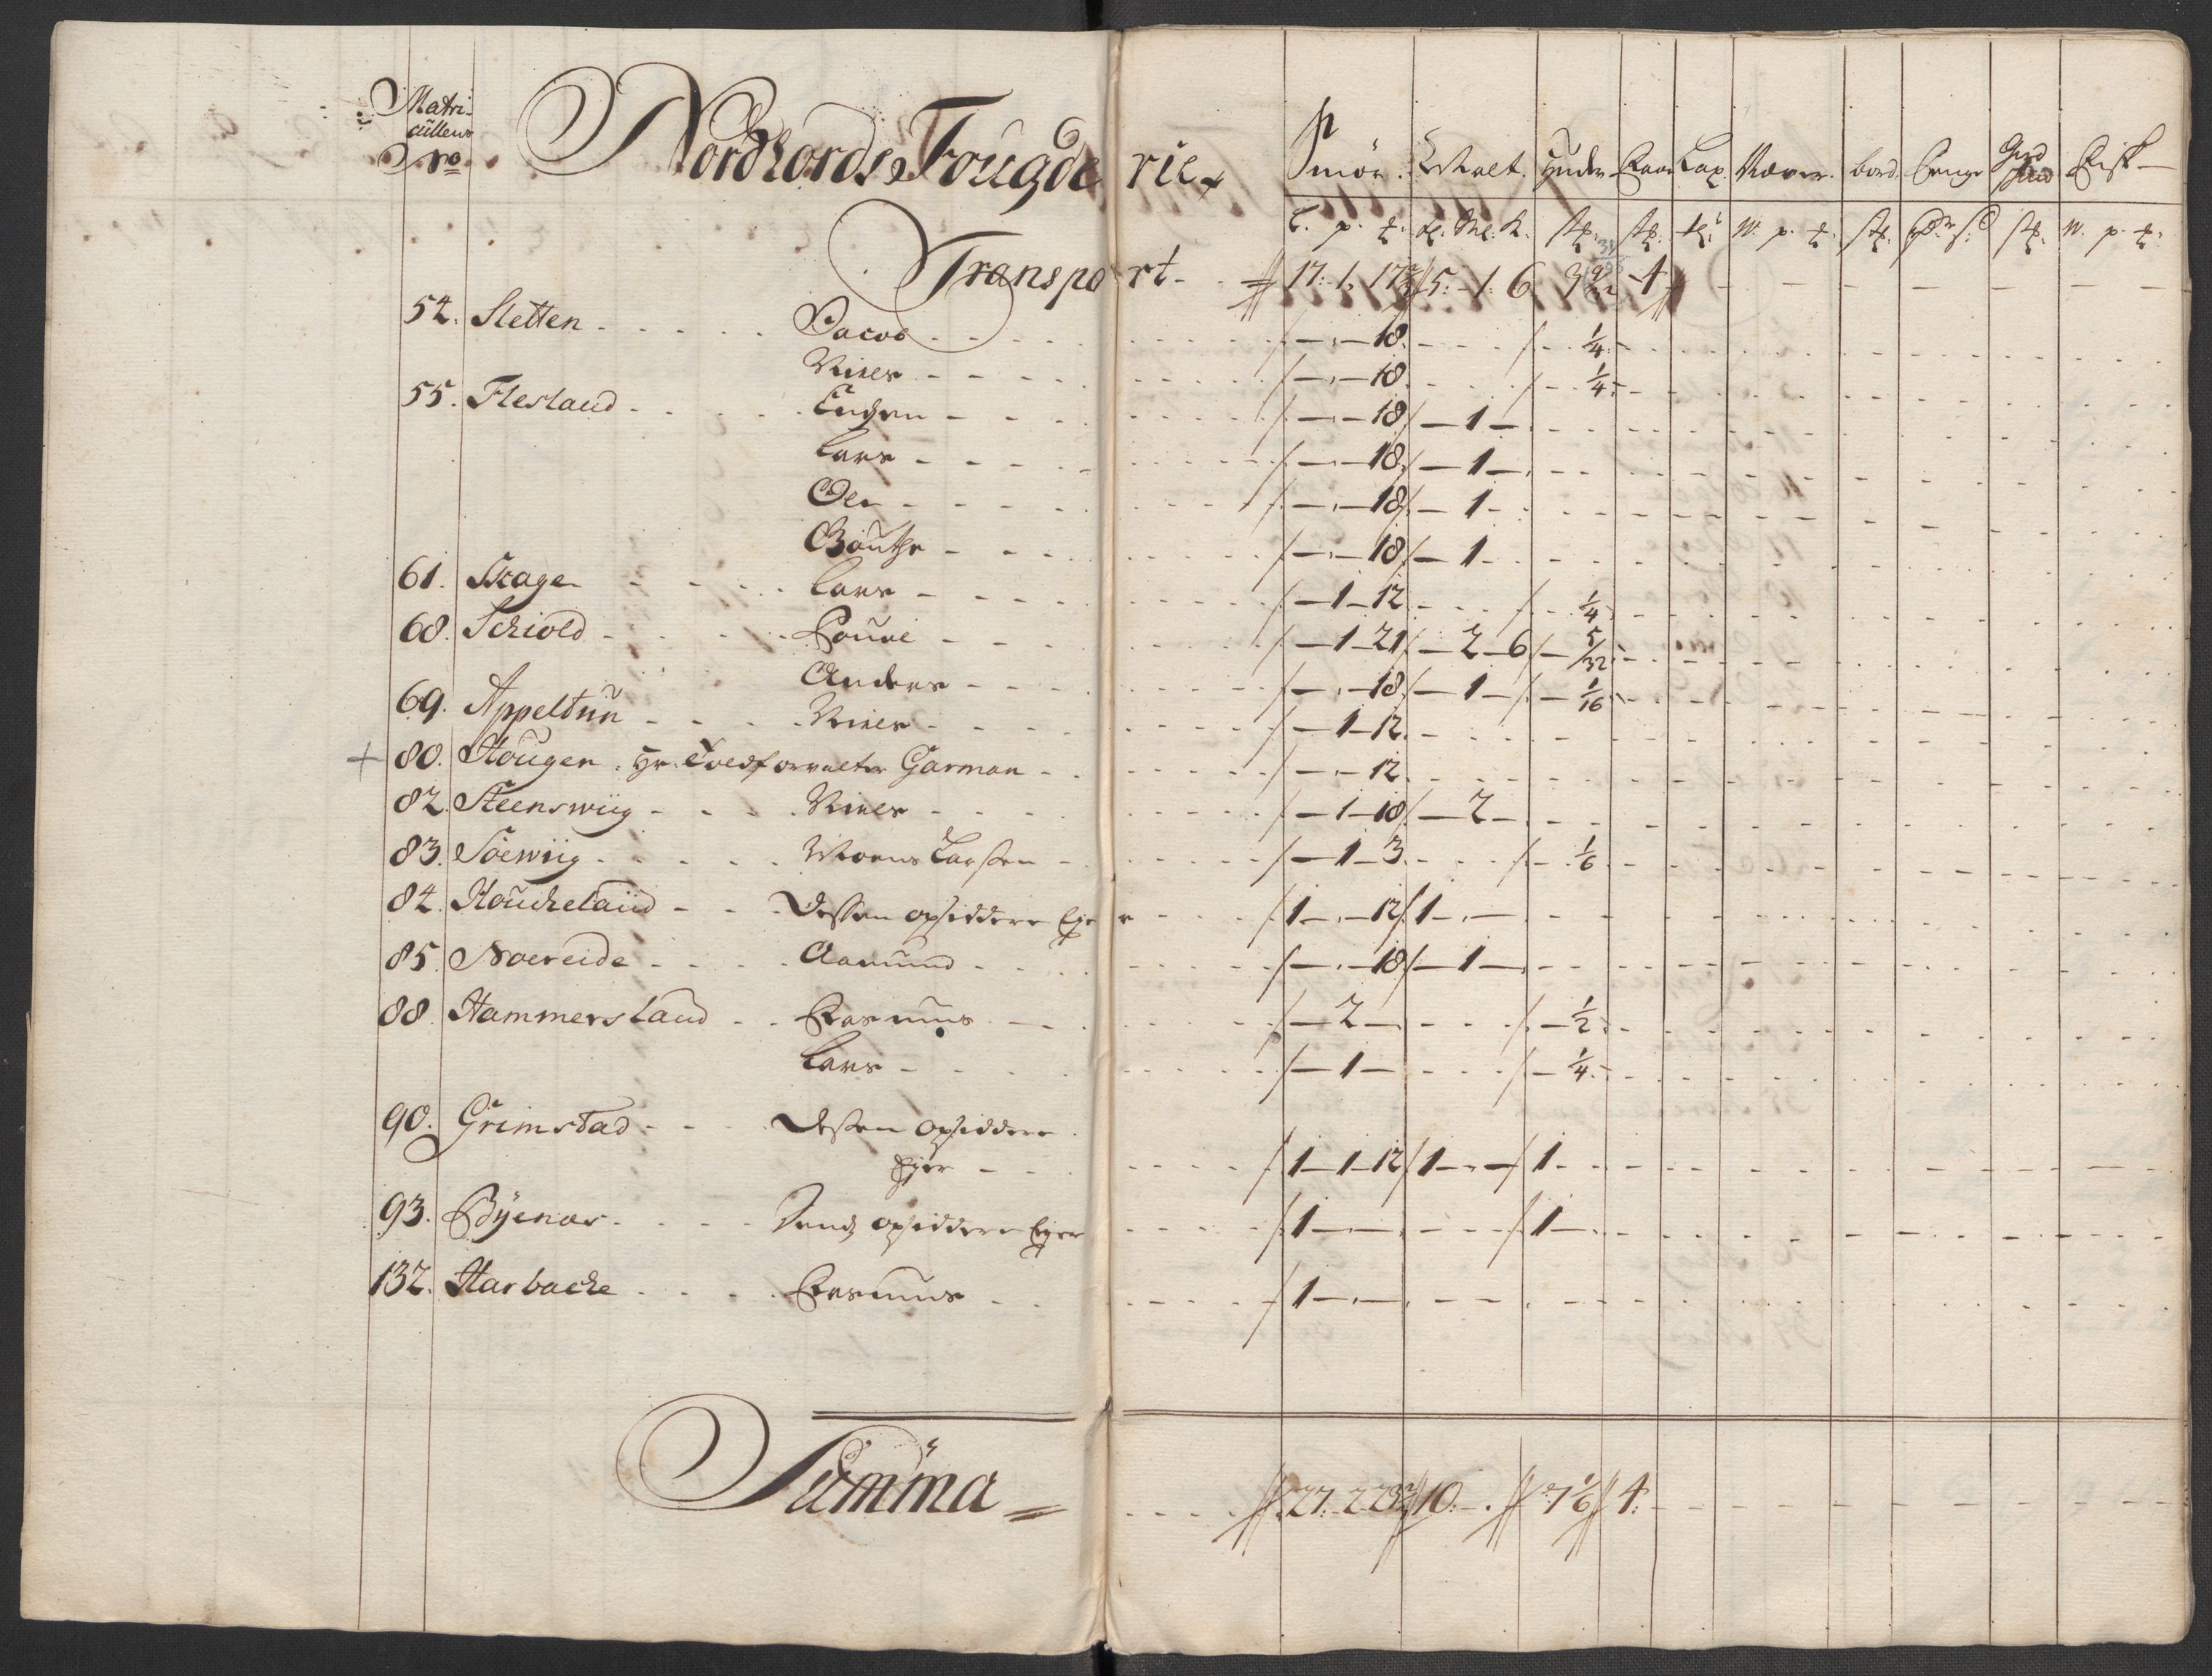 Matri-
cüllens
No
Nordhords Fougderie
Smör. Malt. Huder Lax. Næver. bord. Penge Fisk
Transport - 17. 1. 17 5. 1. 6 3 4
54. Sletten - Jacob - 18. 1/4
Niels - 18. 1/4
55. Flesland - Endren - 18 1
Lars - 18 1
Ole - 18 1
Gouthe - 18 1
61. Skage - Lars - 1 12 1/4
68. Schiold - Pouel - 1 21 2 6 5/32
Anders - 18 1 1/16
69. Appeltun - Niels - 1 12
+ 80. Hougen. Hr. Toldforvalter Garman - 12
82. Steenswiig - Niels - 1 18 2
83. Söewiig - Mons Larsen - 1 3 1/6
84. Houchelaud - Dessen opsiddere Ejer 1 12 1
85. Noereide - Aamund - 18 1
88. Hammersland - Rasmus - 2 1/2
Lars - 1 1/4
90. Grimstad - Dessen opsiddere
Ejer - 1 1 12 1 1
93. Byenæs - opsiddere Ejer 1 1
132. Harbache - Rasmus - 1
Summa = 27. 2 23 10. 7 1/6 4.